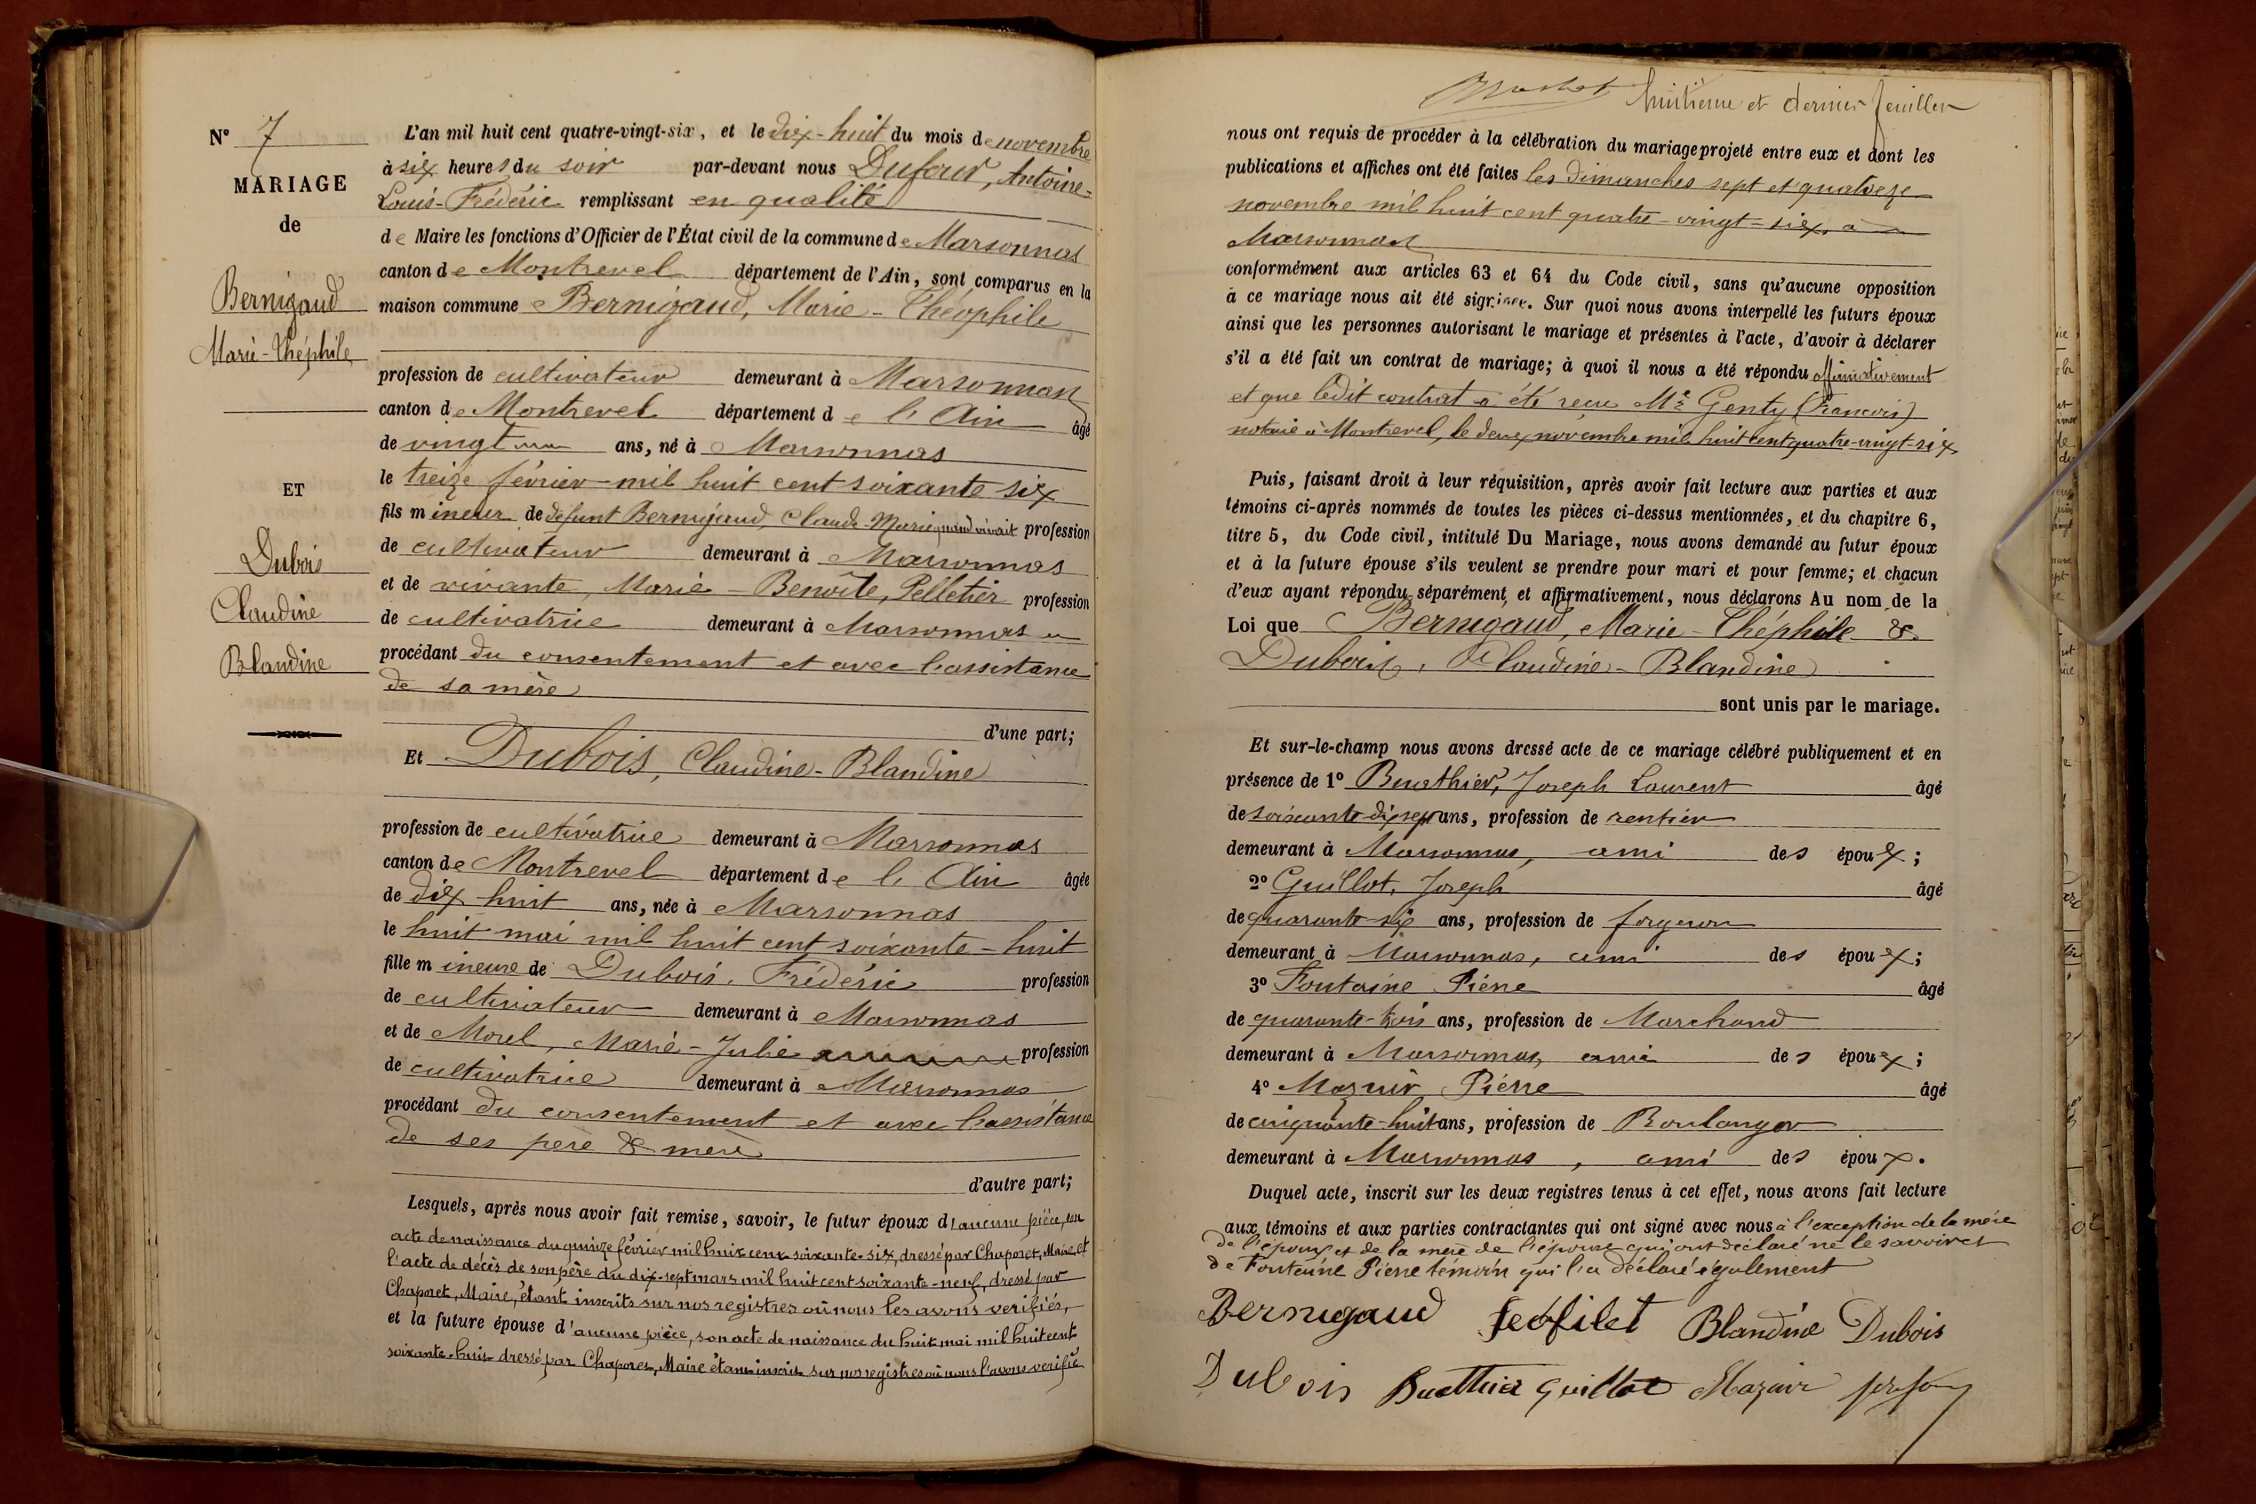 N° 7
MARIAGE
de
Bernigaud
Marie-Théphile
ET
Dubois
Claudine
Blandine
L'an mil huit cent quatre-vingt-six, et le dix-huit du mois de novembre
à six heures du soir par-devant nous Dufour, Antoine-
Louis-Frédéric remplissant en qualité
de Maire les fonctions d'Officier de l'État civil de la commune de Marsonnas
canton de Montrevel département de l'Ain, sont comparus en la
maison commune Bernigaud, Marie-Théophile
profession de cultivateur demeurant à Marsonnas
canton de Montrevel département de l'Ain âgé
de vingt ans, né à Marsonnas
le treize février mil huit cent soixante six
fils mineur de défunt Bernigaud, Claude-Marie quand vivait profession
de cultivateur demeurant à Marsonnas
et de vivante, Marie-Benoîte, Pelletier profession
de cultivatrice demeurant à Marsonnas
procédant du consentement et avec l'assistance
de sa mère
d'une part;
Et Dubois, Claudine-Blandine
profession de cultivatrice demeurant à Marsonnas
canton de Montrevel département de l'Ain âgée
de dix huit ans, née à Marsonnas
le huit mai mil huit cent soixante-huit
fille mineure de Dubois, Frédéric profession
de cultivateur demeurant à Marsonnas
et de Morel, Marie-Julie profession
de cultivatrice demeurant à Marsonnas
procédant du consentement et avec l'assistance
de ses père & mère
d'autre part;
Lesquels, après nous avoir fait remise, savoir, le futur époux d'aucune pièce, son
acte de naissance du quinze février mil huit cent soixante-six, dressé par Chaponet, Maire, et
l'acte de décès de son père du dix-sept mars mil huit cent soixante-neuf, dressé par
Chaponet, Maire, étant inscrits sur nos registres où nous les avons verifiés,
et la future épouse d'aucune pièce, son acte de naissance du huit mai mil huit cent
soixante-huit dressé par Chaponet, Maire étant inscrit sur nos registres où nous l'avons verifié
huitième et dernier feuillet
nous ont requis de procéder à la célébration du mariage projeté entre eux et dont les
publications et affiches ont été faites les dimanches sept et quatorze
novembre mil huit cent quatre-vingt-six, à
Marsonnas
conformément aux articles 63 et 64 du Code civil, sans qu'aucune opposition
à ce mariage nous ait été signifiée. Sur quoi nous avons interpellé les futurs époux
ainsi que les personnes autorisant le mariage et présentes à l'acte, d'avoir à déclarer
s'il a été fait un contrat de mariage; à quoi il nous a été répondu affirmativement
et que ledit contrat a été reçu Me Genty (François)
notaire à Montrevel, le deux novembre mil huit cent quatre-vingt-six
Puis, faisant droit à leur réquisition, après avoir fait lecture aux parties et aux
témoins ci-après nommés de toutes les pièces ci-dessus mentionnées, et du chapitre 6,
titre 5, du Code civil, intitulé Du Mariage, nous avons demandé au futur époux
et à la future épouse s'ils veulent se prendre pour mari et pour femme; et chacun
d'eux ayant répondu séparément et affirmativement, nous déclarons Au nom de la
Loi que Bernigaud, Marie-Théphile &
Dubois, Claudine-Blandine
sont unis par le mariage.
Et sur-le-champ nous avons dressé acte de ce mariage célébré publiquement et en
présence de 1° Buathier, Joseph Laurent âgé
de soixante-dix sept ans, profession de rentier
demeurant à Marsonnas, ami des époux;
2° Guillot, Joseph âgé
de quarante-six ans, profession de forgeron
demeurant à Marsonnas, ami des époux;
3° Fontaine Pierre âgé
de quarante-trois ans, profession de Marchand
demeurant à Marsonnas, ami des époux;
4° Mazuir Pierre âgé
de cinquante-huit ans, profession de Boulanger
demeurant à Marsonnas, ami des époux.
Duquel acte, inscrit sur les deux registres tenus à cet effet, nous avons fait lecture
aux témoins et aux parties contractantes qui ont signé avec nous à l'exception de la mère
de l'époux et de la mère de l'épouse qui ont déclaré ne le savoir et
de Fontaine Pierre témoin qui l'a déclaré également
Bernigaud féofilet Blandine Dubois
Dubois Buathier Guillot Mazuir